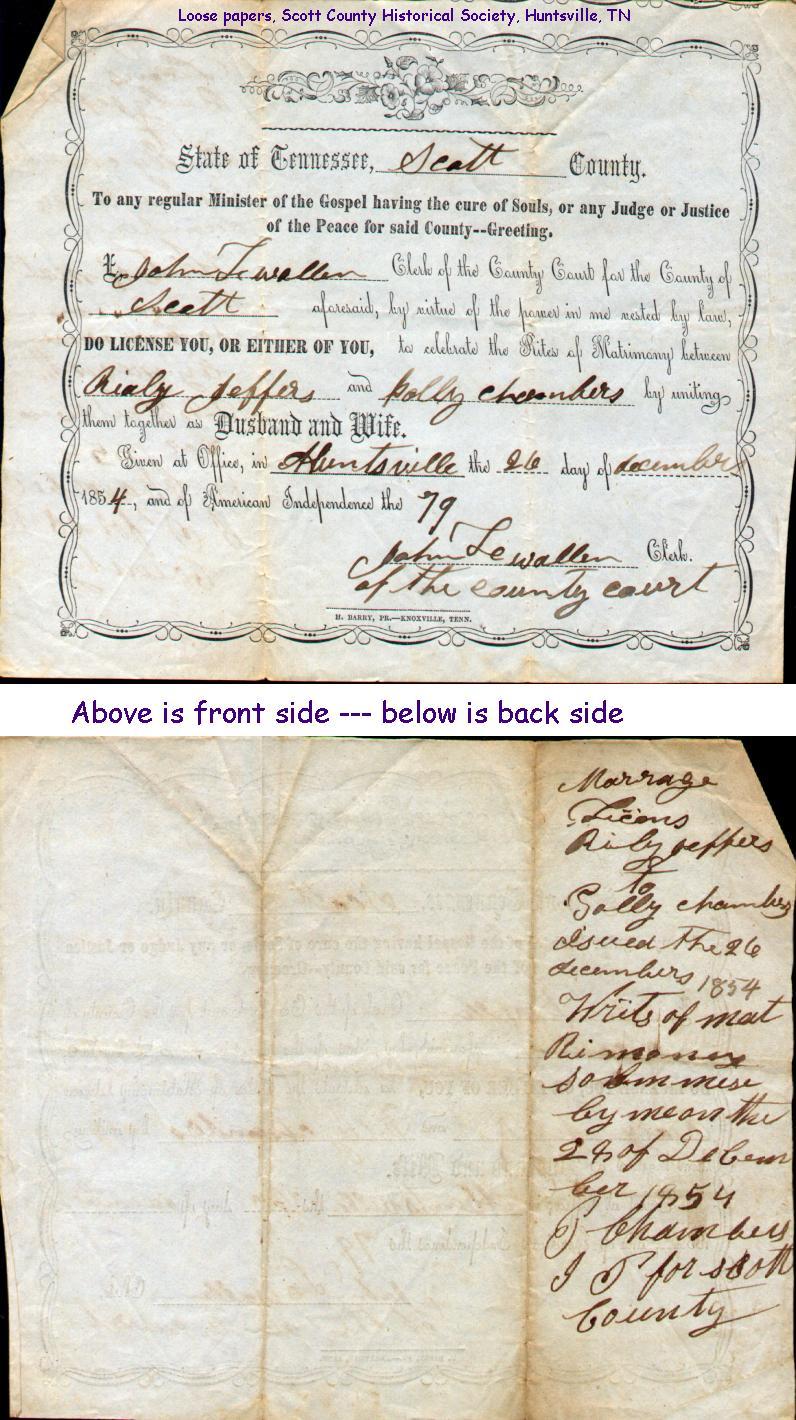 Loose papers, Scott County Historical Society, Huntsville, TN
State of Tennessee, Scott County.
To any regular Minister of the Gospel having the cure of Souls, or any Judge or Justice
of the Peace for said County--Greeting.
I, John Lewallen Clerk of the County Court for the County of
Scott aforesaid, by virtue of the power in me vested by law,
DO LICENSE YOU, OR EITHER OF YOU, to celebrate the Rites of Matrimony between
Rialy Jeffers and Polly chambers by uniting
them together as Husband and Wife.
Given at Office, in Huntsville the 26 day of december
1854, and of American Independence the 79
John Lewallen Clerk.
of the county court
H. BARRY, PR.—KNOXVILLE, TENN.
Above is front side --- below is back side
Marrage
Licens
Rialy Jeffers
to
Polly chambers
isued the 26
decembers 1854
Writs of mat
Rimony
by me on the
28 of Decem
ber 1854
P Chambers
J P for scott
County